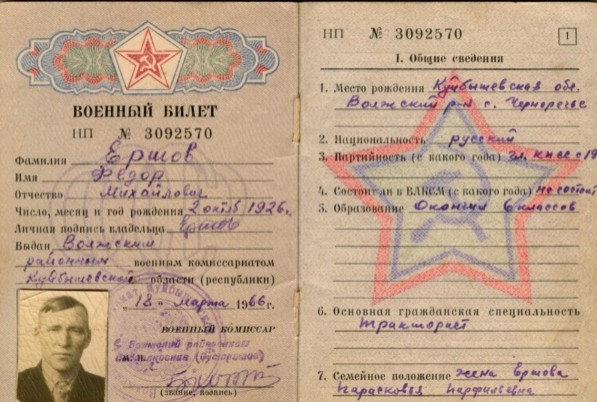 ВОЕННЫЙ БИЛЕТ
НП № 3092570
Фамилия Ершов
Имя Федор
Отчество Михайлович
Число, месяц и год рождения 2 октяб 1926г.
Личная подпись владельца Ершов
Выдан Волжским
районным военным комиссариатом
Куйбышевской области (республики)
„18“ марта 1966г.
ВОЕННЫЙ КОМИССАР
(звание, подпись)
НП № 3092570 1
I. Общие сведения
1. Место рождения Куйбышевская обл.
Волжский р-н с. Черноречье
2. Национальность русский
3. Партийность (с какого года) чл. кпсс с 19
4. Состоял ли в ВЛКСМ (с какого года) не состоял
5. Образование Окончил 6 классов
6. Основная гражданская специальность
тракторист
7. Семейное положение жена Ершова
Парасковья Парфильевна